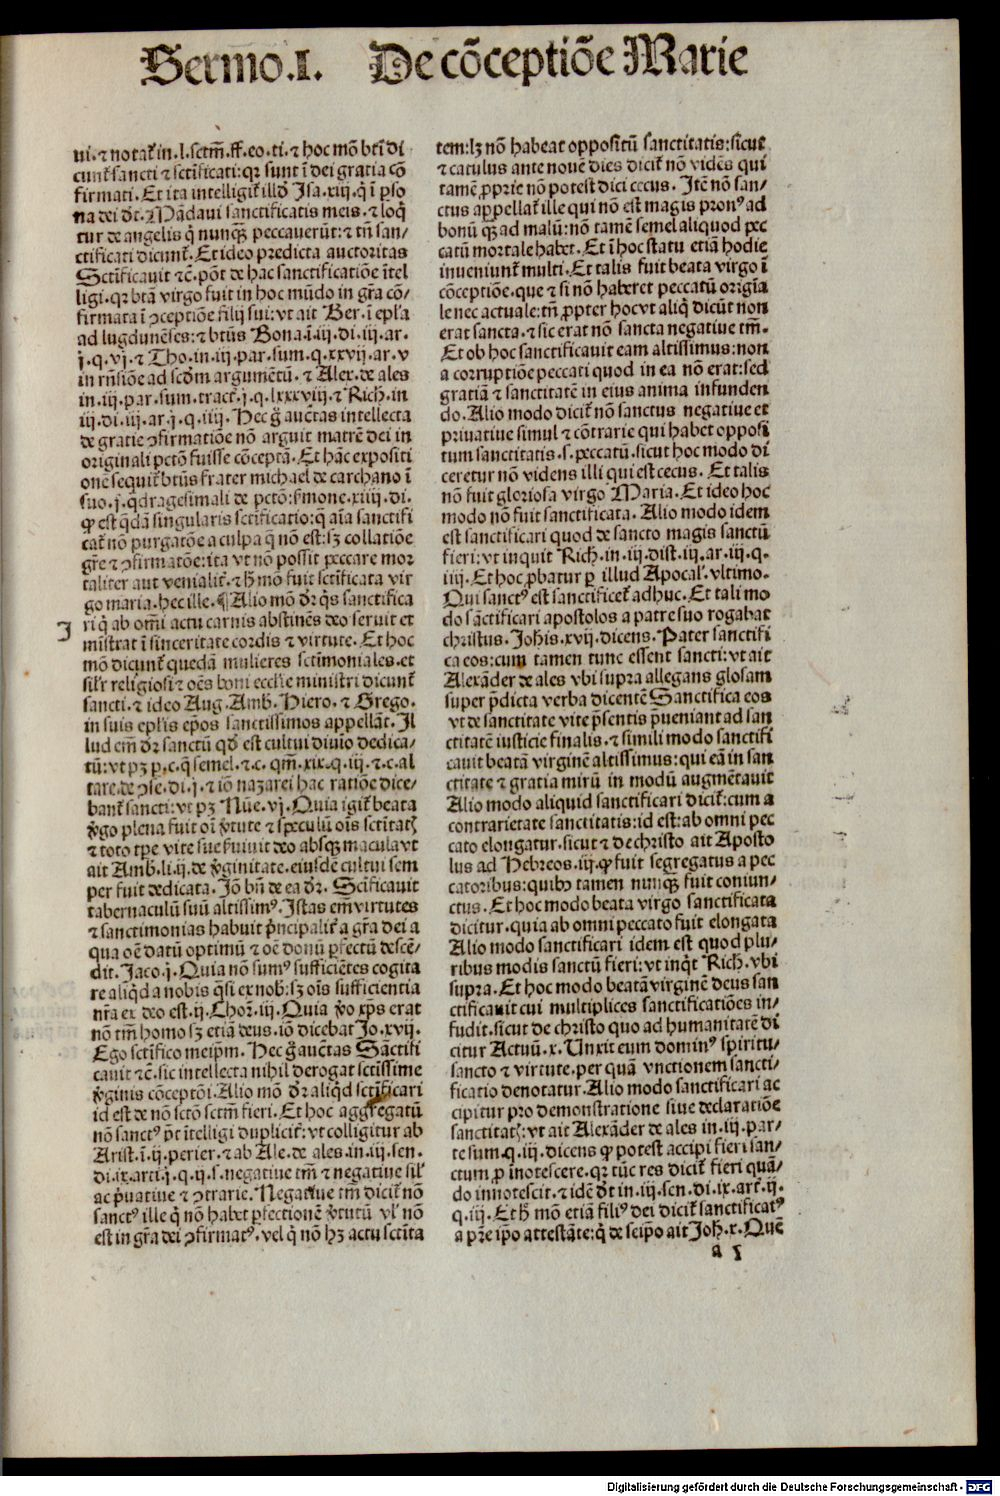 Sermo.I. De cōceptiōe Marie
vi.⁊ notat̄ in.l.sctm̄.ff.eo.ti.⁊ hoc mō btī di
cunt̄ sancti ⁊ sct̄ificati:qꝛ sunt ī dei gratia cō
firmati. Et ita intelligit̄ illḋ Isa.xiij.q̇ ī ꝑso
na dei dt̄. Mādaui sanctificatis meis.⁊ loq̇
tur de angelis q̇ nunqꝫ peccauerūt:⁊ tn̄ san/
ctificati dicunt̄. Et ideo predicta auctoritas
Sct̄ificauit ⁊c̄.pōt de hac sanctificatiōe ītel
ligi.qꝛ btā virgo fuit in hoc mūdo in gr̄a cō/
firmata ī ꝯceptiōe filij sui:vt ait Ber.ī epl̄a
ad lugdunēses:⁊ btūs Bona.ī.iij.di.iij.ar.
j.q.vj.⁊ Tho.in.iij.par.sum.q.xxvij.ar.v
in rn̄siōe ad scḋm argumētū.⁊ Alex.de ales
in.iij.par.sum.tract̄.j.q.lxxxvij.⁊ Rich̄.in
iij.di.iij.ar.j.q.iiij. Hec ḡ auct̄as intellecta
de gratie ꝯfirmatiōe nō arguit matrē dei in
originali pctō fuisse cōceptā. Et hāc expositi
onē sequit̄ btūs frater michael de carchano ī
suo.j.q̄dragesimali de pctō:ẜmone.xiiij.di.
ꝙ est q̄dā singularis sct̄ificatio:q̄ aīa sanctifi
cat̄ nō purgatōe a culpa q̄ nō est:sꝫ collatiōe
gr̄e ⁊ ꝯfirmatōe:ita vt nō possit peccare mor
taliter aut venialit̄.⁊ h̄ mō fuit sct̄ificata vir
go maria.hec ille. ¶Alio mō dr̄ q̇s sanctifica
ri q̇ ab om̄i actu carnis abstinēs deo seruit et
mīstrat ī sinceritate cordis ⁊ virtute. Et hoc
mō dicunt̄ quedā mulieres sctīmoniales.et
sil̄r religiosi ⁊ oēs boni eccl̄ie ministri dicunt̄
sancti.⁊ ideo Aug.Amb̄.Hiero.⁊ Grego.
in suis epl̄is ep̄os sanctissimos appellāt. Il
lud em̄ dr̄ sanctū qḋ est cultui diuīo dedica/
tū:vt pꝫ ꝑ.c.q̇ semel.⁊.c.qm̄.xix.q.iij.⁊.c.al
tare.de ꝯse.di.j.⁊ iō nazarei hac ratiōe dice/
bant̄ sancti:vt pꝫ Nūe.vj. Quia igit̄ beata
v̇go plena fuit oī v̇tute ⁊ speculū oīs sct̄itatꝭ
⁊ toto tꝑe vite sue ẜuiuit deo absqꝫ macula vt
ait Amb̄.li.ij.de v̇ginitate.eiusdē cultui sem
per fuit dedicata. Iō bn̄ de ea dr̄. Sct̄ificauit
tabernaculū suū altissimꝰ. Istas em̄ virtutes
⁊ sanctimonias habuit p̄ncipalit̄ a gr̄a dei a
qua oē datū optimū ⁊ oē donū ꝑfectū descē/
dit. Iaco.j. Quia nō sumꝰ sufficiētes cogita
re aliq̇d a nobis q̄si ex nob̄:sꝫ oīs sufficientia
nr̄a ex deo est.ij.Chor̄.iij. Quia v̇o xp̄s erat
nō tm̄ homo sꝫ etiā deus.iō dicebat Io.xvij.
Ego sct̄ifico meip̄m. Hec ḡ auct̄as Sāctifi
cauit ⁊c̄.sic intellecta nihil derogat sct̄issime
v̇ginis cōceptōi. Alio mō dr̄ aliq̇d sct̄ificari
id est de nō sctō sctm̄ fieri. Et hoc aggregatū
nō sanctꝰ pt̄ ītelligi duplicit̄:vt colligitur ab
Arist.ī.ij.perier.⁊ ab Ale.de ales.in.iij.sen.
di.ix.arti.j.q.ij.s.negatiue tm̄ ⁊ negatiue sil̄
ac p̄uatiue ⁊ ꝯtrarie. Negatiue tm̄ dicit̄ nō
sanctꝰ ille q̇ nō habet ꝑfectionē v̇tutū vl̄ nō
est in gr̄a dei ꝯfirmatꝰ.vel q̇ nō hꝫ actu sct̄ita
J
tem:lꝫ nō habeat oppositū sanctitatis:sicut
⁊ catulus ante nouē dies dicit̄ nō vidēs qui
tamē ꝓprie nō potest dici cecus. Itē nō san/
ctus appellat̄ ille qui nō est magis pronꝰ ad
bonū qꝫ ad malū:nō tamē semel aliquod pec
catū mortale habet. Et ī hoc statu etiā hodie
inueniunt̄ multi. Et talis fuit beata virgo ī
cōceptiōe.que ⁊ si nō haberet peccatū origīa
le nec actuale:tn̄ ꝓpter hoc vt aliq̇ dicūt non
erat sancta.⁊ sic erat nō sancta negatiue tm̄.
Et ob hoc sanctificauit eam altissimus:non
a corruptiōe peccati quod in ea nō erat:sed
gratiā ⁊ sanctitatē in eius anima infunden
do. Alio modo dicit̄ nō sanctus negatiue et
priuatiue simul ⁊ cōtrarie qui habet opposi
tum sanctitatis.s.peccatū.sicut hoc modo di
ceretur nō videns illi qui est cecus. Et talis
nō fuit gloriosa virgo Maria. Et ideo hoc
modo nō fuit sanctificata. Alio modo idem
est sanctificari quod de sancto magis sanctū
fieri:vt inquit Rich̄.in.iij.dist.iij.ar.iij.q.
iiij. Et hoc ꝓbatur ꝑ illud Apocal̄.vltimo.
Qui sanctꝰ est sanctificet̄ adhuc. Et tali mo
do sāctificari apostolos a patre suo rogabat
christus. Joh̄is.xvij.dicens. Pater sanctifi
ca eos:cum tamen tunc essent sancti:vt ait
Alexāder de ales vbi supra allegans glosam
super p̄dicta verba dicentē Sanctifica eos
vt de sanctitate vite p̄sentis ꝑueniant ad san
ctitatē iusticie finalis.⁊ simili modo sanctifi
cauit beatā virginē altissimus:qui eā in san
ctitate ⁊ gratia mirū in modū augmētauit
Alio modo aliquid sanctificari dicit̄:cum a
contrarietate sanctitatis:id est:ab omni pec
cato elongatur.sicut ⁊ de christo ait Aposto
lus ad Hebreos.iij.ꝙ fuit segregatus a pec
catoribus:quibꝫ tamen nunqꝫ fuit coniun/
ctus. Et hoc modo beata virgo sanctificata
dicitur.quia ab omni peccato fuit elongata
Alio modo sanctificari idem est quod plu/
ribus modis sanctū fieri:vt inq̇t Rich̄.vbi
supra. Et hoc modo beatā virginē deus san
ctificauit cui multiplices sanctificatiōes in/
fudit.sicut de christo quo ad humanitatē di
citur Actuū.x. Unxit eum dominꝰ spiritu/
sancto ⁊ virtute.per quā vnctionem sancti/
ficatio denotatur. Alio modo sanctificari ac
cipitur pro demonstratione siue declaratiōe
sanctitatꝭ:vt ait Alexāder de ales in.iij.par/
te sum.q.iij.dicens ꝙ potest accipi fieri san/
ctum ꝓ innotescere.qꝛ tūc res dicit̄ fieri quā/
do innotescit.⁊ idē dt̄ in.iij.sen.di.ix.art̄.ij.
q.iij. Et h̄ mō etiā filiꝰ dei dicit̄ sanctificatꝰ
a pr̄e ip̄o attestāte:q̇ de seip̄o ait Joh̄.x. Quē
a 1
Digitalisierung gefördert durch die Deutsche Forschungsgemeinschaft - DFG